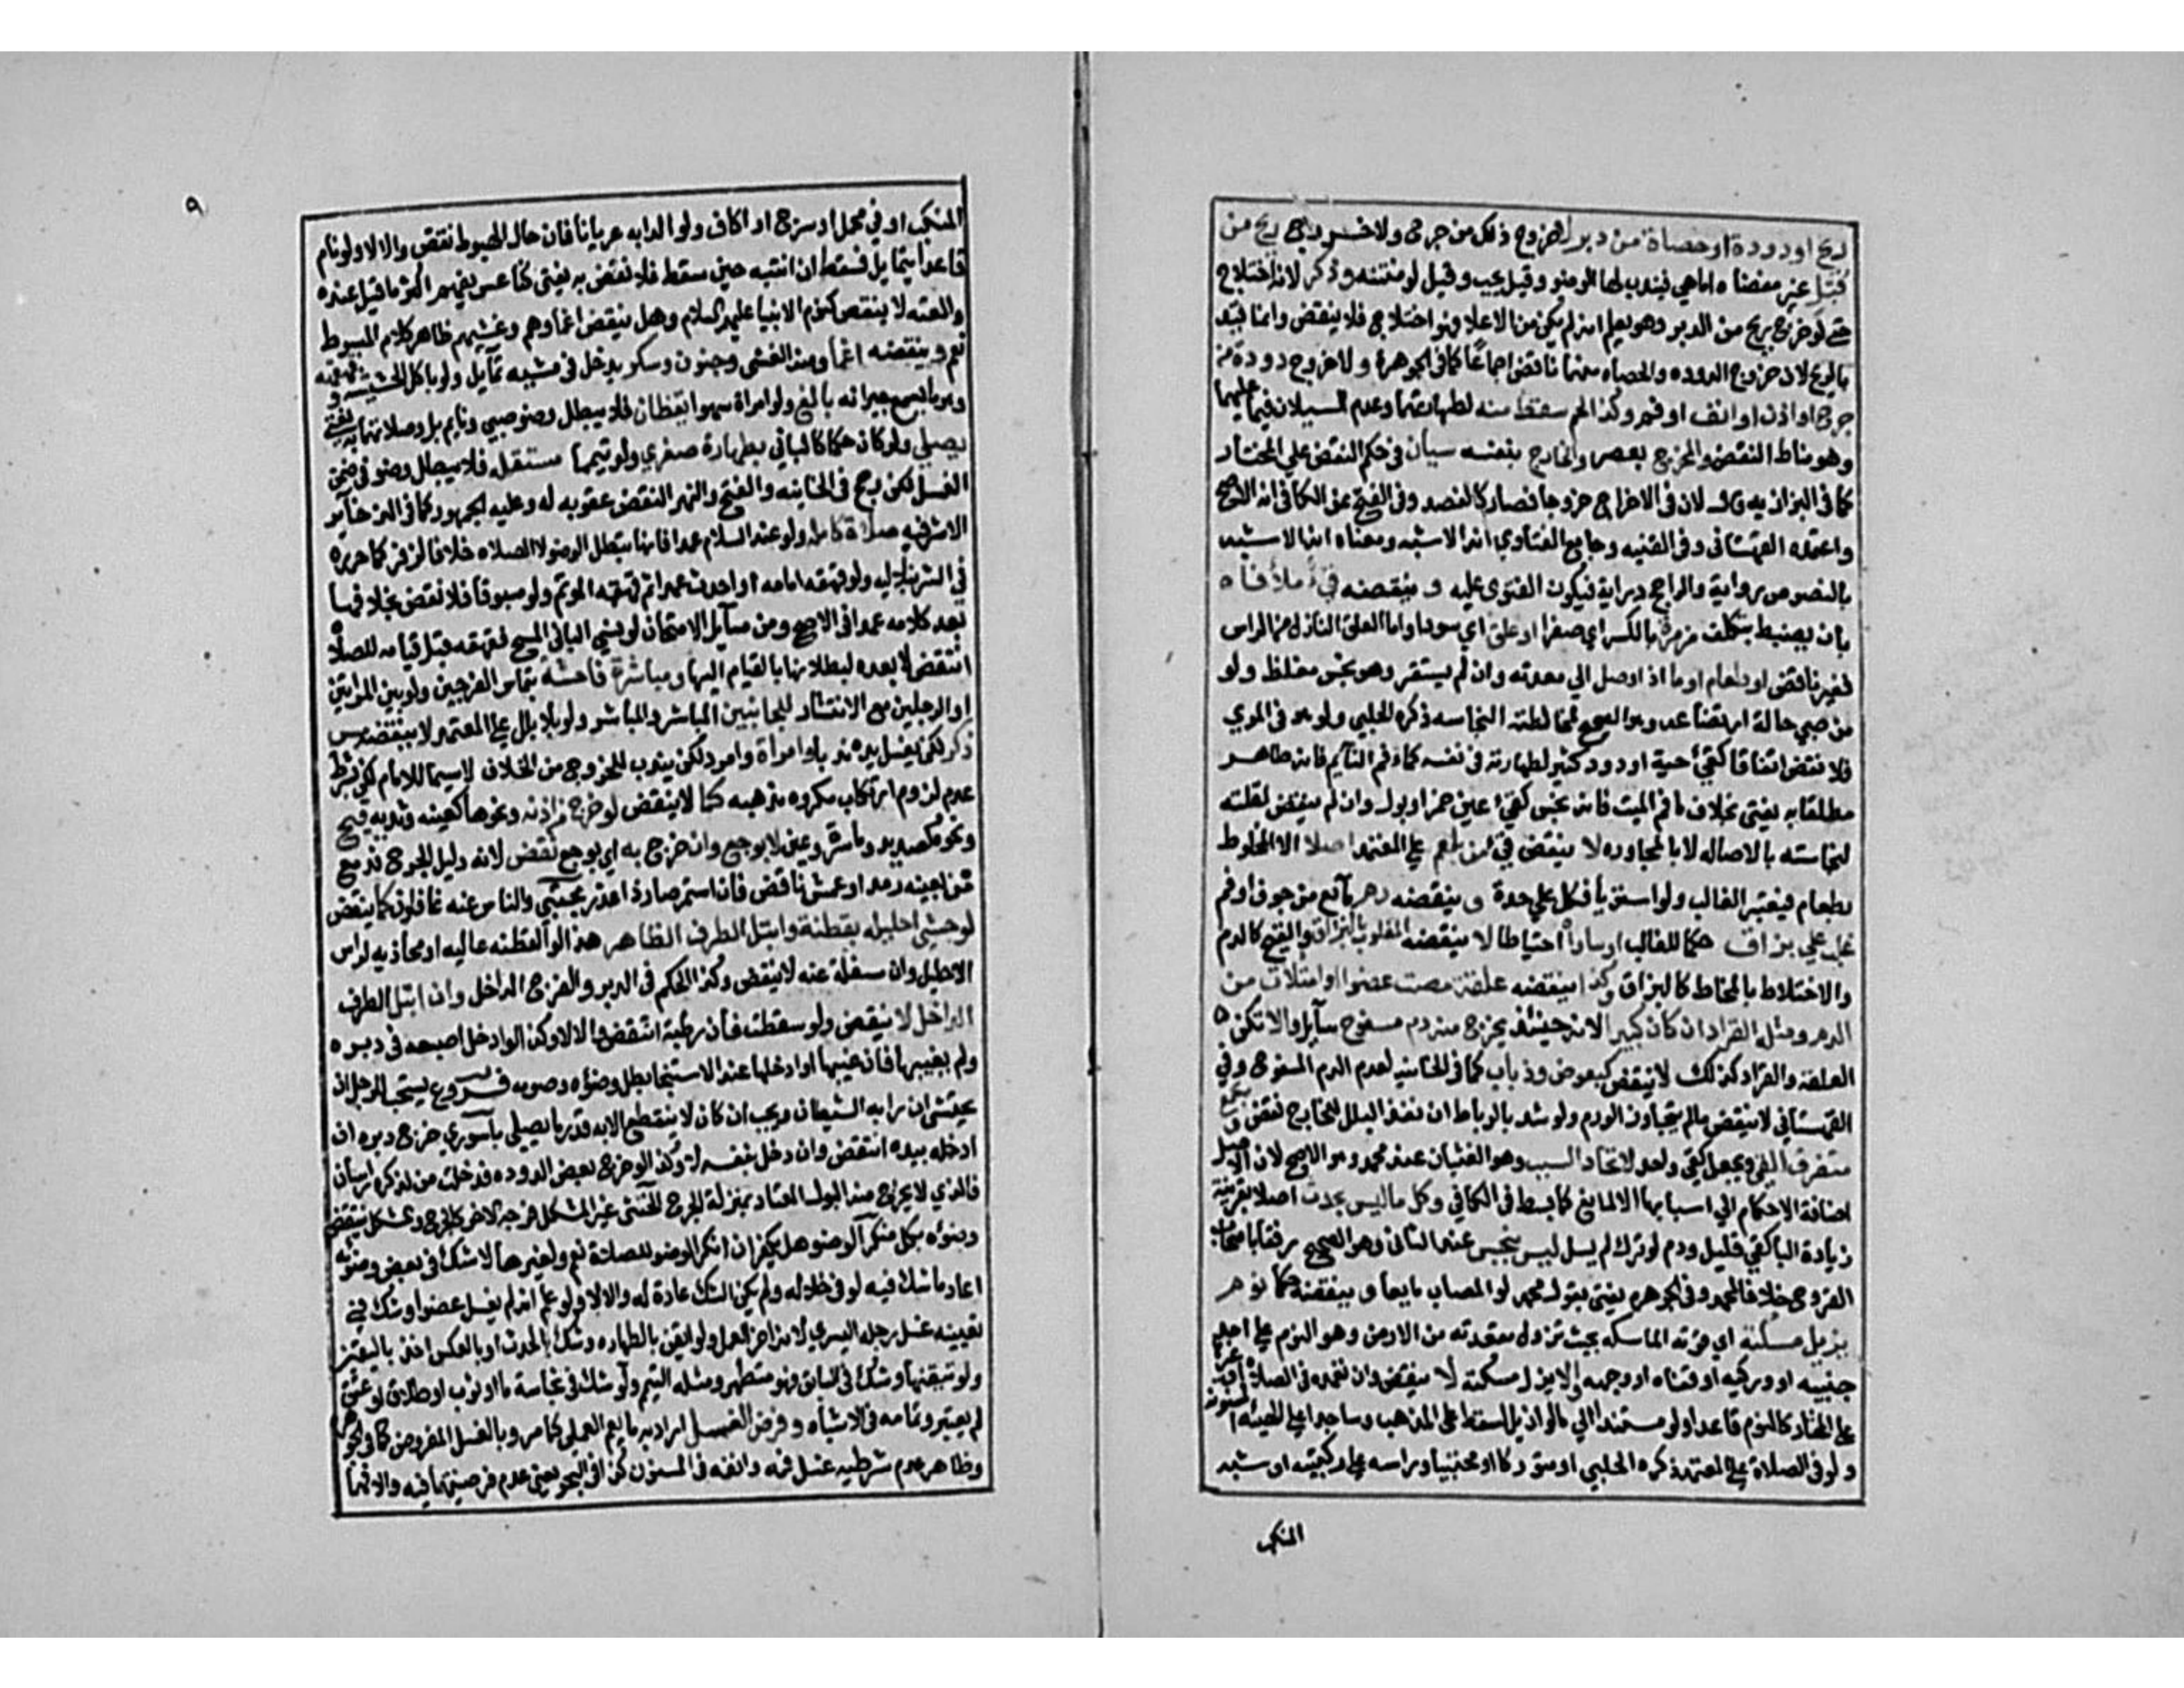 ريح او دودة او حصاة من دبر لا خروج ذلك من جرح ولا خروج ريح من
قبل غير مفضاة اما هي فيندب لها الوضو وقيل يجب وقيل لو منتنه وذكر لانه اختلاج
حتى لو خرج ريح من الدبر وهو يعلم انه لم يكن من الاعلا فهو اختلاج فلا ينقض وانما قيد
بالريح لان خروج الدوده والحصاه منهما ناقض اجماعا كما في الجوهرة ولا خروج دودة من
جرح او اذن او انف او فم وكذا لحم سقط منه لطهارتهما وعدم السيلان فيما عليهما
وهو مناط النقض والمخرج بعصر والخارج بنفسه سيان في حكم النقض على المختار
كما في البزازيه قال لان في الاخراج خروجا فصار كالفصد وفي الفتح عن الكافي انه الاصح
واعتمده القهستاني وفي القنيه وجامع الفتاوي انه الاشبه ومعناه انه الاشبه
بالنصوص رواية والراجح دراية فيكون الفتوى عليه و ينقضه قي ملأ فاه
بان يضبط بتكلف من مرة بالكسر اي صفرا او علق اي سودا واما العلق النازل من الراس
فغير ناقض او طعام او ما اذا وصل الي معدته وان لم يستقر وهو نجس مغلظ ولو
من صبي حالة ارتضاعه وهو الصحيح لمخالطته النجاسه ذكره الحلبي ولو هو في المري
فلا نقض اتفاقا كقي حية او دود كثير لطهارته في نفسه كماء فم النايم فانه طاهر
مطلقا به يفتى بخلاف ما فم الميت فانه نجس كقي عين خمر او بول وان لم ينقض لقلته
لنجاسته بالاصاله لا بالمجاوره لا ينقض قي من بلغم على المعتمد اصلا الا المخلوط
بطعام فيعتبر الغالب ولو استويا فكل على حدة و ينقضه دم مايع من جوف او فم
غلب على بزاق حكما للغالب او ساواه احتياطا لا ينقضه المغلوب بالبزاق والقيح كالدم
والاختلاط بالمخاط كالبزاق وكذا ينقضه علقة مصت عضوا وامتلات من
الدم ومثلها القراد ان كان كبيرا لانه حينئذ يخرج منه دم مسفوح سايل والا تكن
العلقة والقراد كذلك لا ينقض كبعوض وذباب كما في الخانيه لعدم الدم المسفوح وفي
القهستاني لا ينقض ما لم يتجاوز الورم ولو شد بالرباط ان نفذ البلل للخارج نقض و يجمع
متفرق القي ويجعل كقي واحد لاتحاد السبب وهو الغثيان عند محمد وهو الاصح لان الاصل
اضافة الاحكام الي اسبابها الا لمانع كما بسط في الكافي وكل ما ليس بحدث اصلا بقرينة
زيادة الباء كقي قليل ودم لو ترك لم يسل ليس بنجس عند الثاني وهو الصحيح رفقا باصحاب
القروح خلافا لمحمد وفي الجوهره يفتى بقول محمد لو المصاب مايعا و ينقضه حكما نوم
يزيل مسكته اي قوته الماسكه بحيث تزول مقعدته من الارض وهو النوم على احد
جنبيه او وركيه او قفاه او وجهه والا يزل مسكته لا ينقض وان تعمده في الصلاة او غيرها
على المختار كالنوم قاعدا ولو مستندا الي ما لو ازيل لسقط على المذهب وساجدا على الهيئه المسنونه
ولو في الصلاة على المعتمد ذكره الحلبي او متوركا او محتبيا وراسه على ركبتيه او شبه
المنكب
٩
المنكب او في محمل او سرج او اكاف ولو الدابه عريانا فان حال الهبوط نقض والا لا ولو نام
قاعدا يتمايل فسقط ان انتبه حين سقط فلا نقض به يفتى كناعس يفهم اكثر ما قيل عنده
والعته لا ينقض كنوم الانبيا عليهم السلام وهل ينقض اغماوهم وغشيهم ظاهر كلام المبسوط
نعم و ينقضه اغما ومنه الغشي وجنون وسكر يدخل في مشيه تمايل ولو باكل الحشيشه وقهقهه
وهو ما يسمع جيرانه بالغ ولو امراة سهوا يقظان فلا يبطل وضو صبي ونايم بل وصلاتهما به يفتى
يصلي ولو كان حكما كالباني بطهارة صغري ولو تيمما مستقله فلا يبطل وضو في ضمن
الغسل لكن رجح في الخانيه والفتح والنهر النقض عقوبه له وعليه الجمهور كما في الذخاير
الاشرفيه صلاة كامله ولو عند السلام عمدا فانها تبطل الوضو لا الصلاه خلافا لزفر كما حرره
في الشرنبلاليه ولو قهقه امامه او احدث عمدا ثم قهقه الموتم ولو مسبوقا فلا نقض بخلافها
بعد كلامه عمدا في الاصح ومن مسايل الامتحان لو نسي الباني المسح فقهقه قبل قيامه للصلاة
انتقض لا بعده لبطلانها بالقيام اليها و مباشرة فاحشة بتماس الفرجين ولو بين المراتين
او الرجلين مع الانتشار للجانبين المباشر والمباشر ولو بلا بلل على المعتمد لا ينقضه مس
ذكر لكن يغسل يده ندبا وامراة وامرد لكن يندب للخروج من الخلاف لاسيما للامام لكن بشرط
عدم لزوم ارتكاب مكروه مذهبه كما لا ينقض لو خرج من اذنه ونحوها كعينه وثديه قيح
ونحوه كصديد وماء سرة وعين لا بوجع وان خرج به اي بوجع نقض لانه دليل الجرح فدمع
من بعينه رمد او عمش ناقض فان استمر صار ذا عذر مجتبى والناس عنه غافلون كما ينقض
لو حشى احليله بقطنة وابتل الطرف الظاهر هذا لو القطنه عاليه او محاذيه لراس
الاحليل وان سفلة عنه لا ينقض وكذا الحكم في الدبر والفرج الداخل وان ابتل الطرف
الداخل لا ينقض ولو سقطت فان رطبة انتقض والا لا وكذا لو ادخل اصبعه في دبره
ولم يغيبها فان غيبها او ادخلها عند الاستنجا بطل وضوه وصومه فروع يستحب للرجل ان
يحتشي ان رابه الشيطان ويجب ان كان لا ينقطع الا به قدر ما يصلي باسوري خرج دبره ان
ادخله بيده انتقض وان دخل بنفسه لا وكذا لو خرج بعض الدوده فدخلت من لذكره راسان
فالذي لا يخرج منه البول المعتاد بمنزلة الجرح الخنثى غير المشكل فرجه الاخر كالجرح والمشكل ينتقض
وضوه بكل منكر الوضو هل يكفر ان انكر الوضو للصلاة نعم ولغيرها لا شك في بعض وضوئه
اعاد ما شك فيه لو في خلاله ولم يكن الشك عادة له والا لا ولو علم انه لم يغسل عضوا وشك في
تعيينه غسل رجله اليسري لانه اخر العمل ولو ايقن بالطهاره وشك بالحدث او بالعكس اخذ باليقين
ولو تيقنهما وشك في السابق فهو متطهر ومثله التيمم ولو شك في نجاسة ما او ثوب او طلاق او عتق
لم يعتبر وتمامه في الاشباه و فرض الغسل اراد به ما يعم العملي كما مر وبالغسل المفروض كما في الجوهره
وظاهره عدم شرطيه غسل فمه وانفه في المسنون كذا في البحر يعني عدم فرضيتها فيه والا فهما